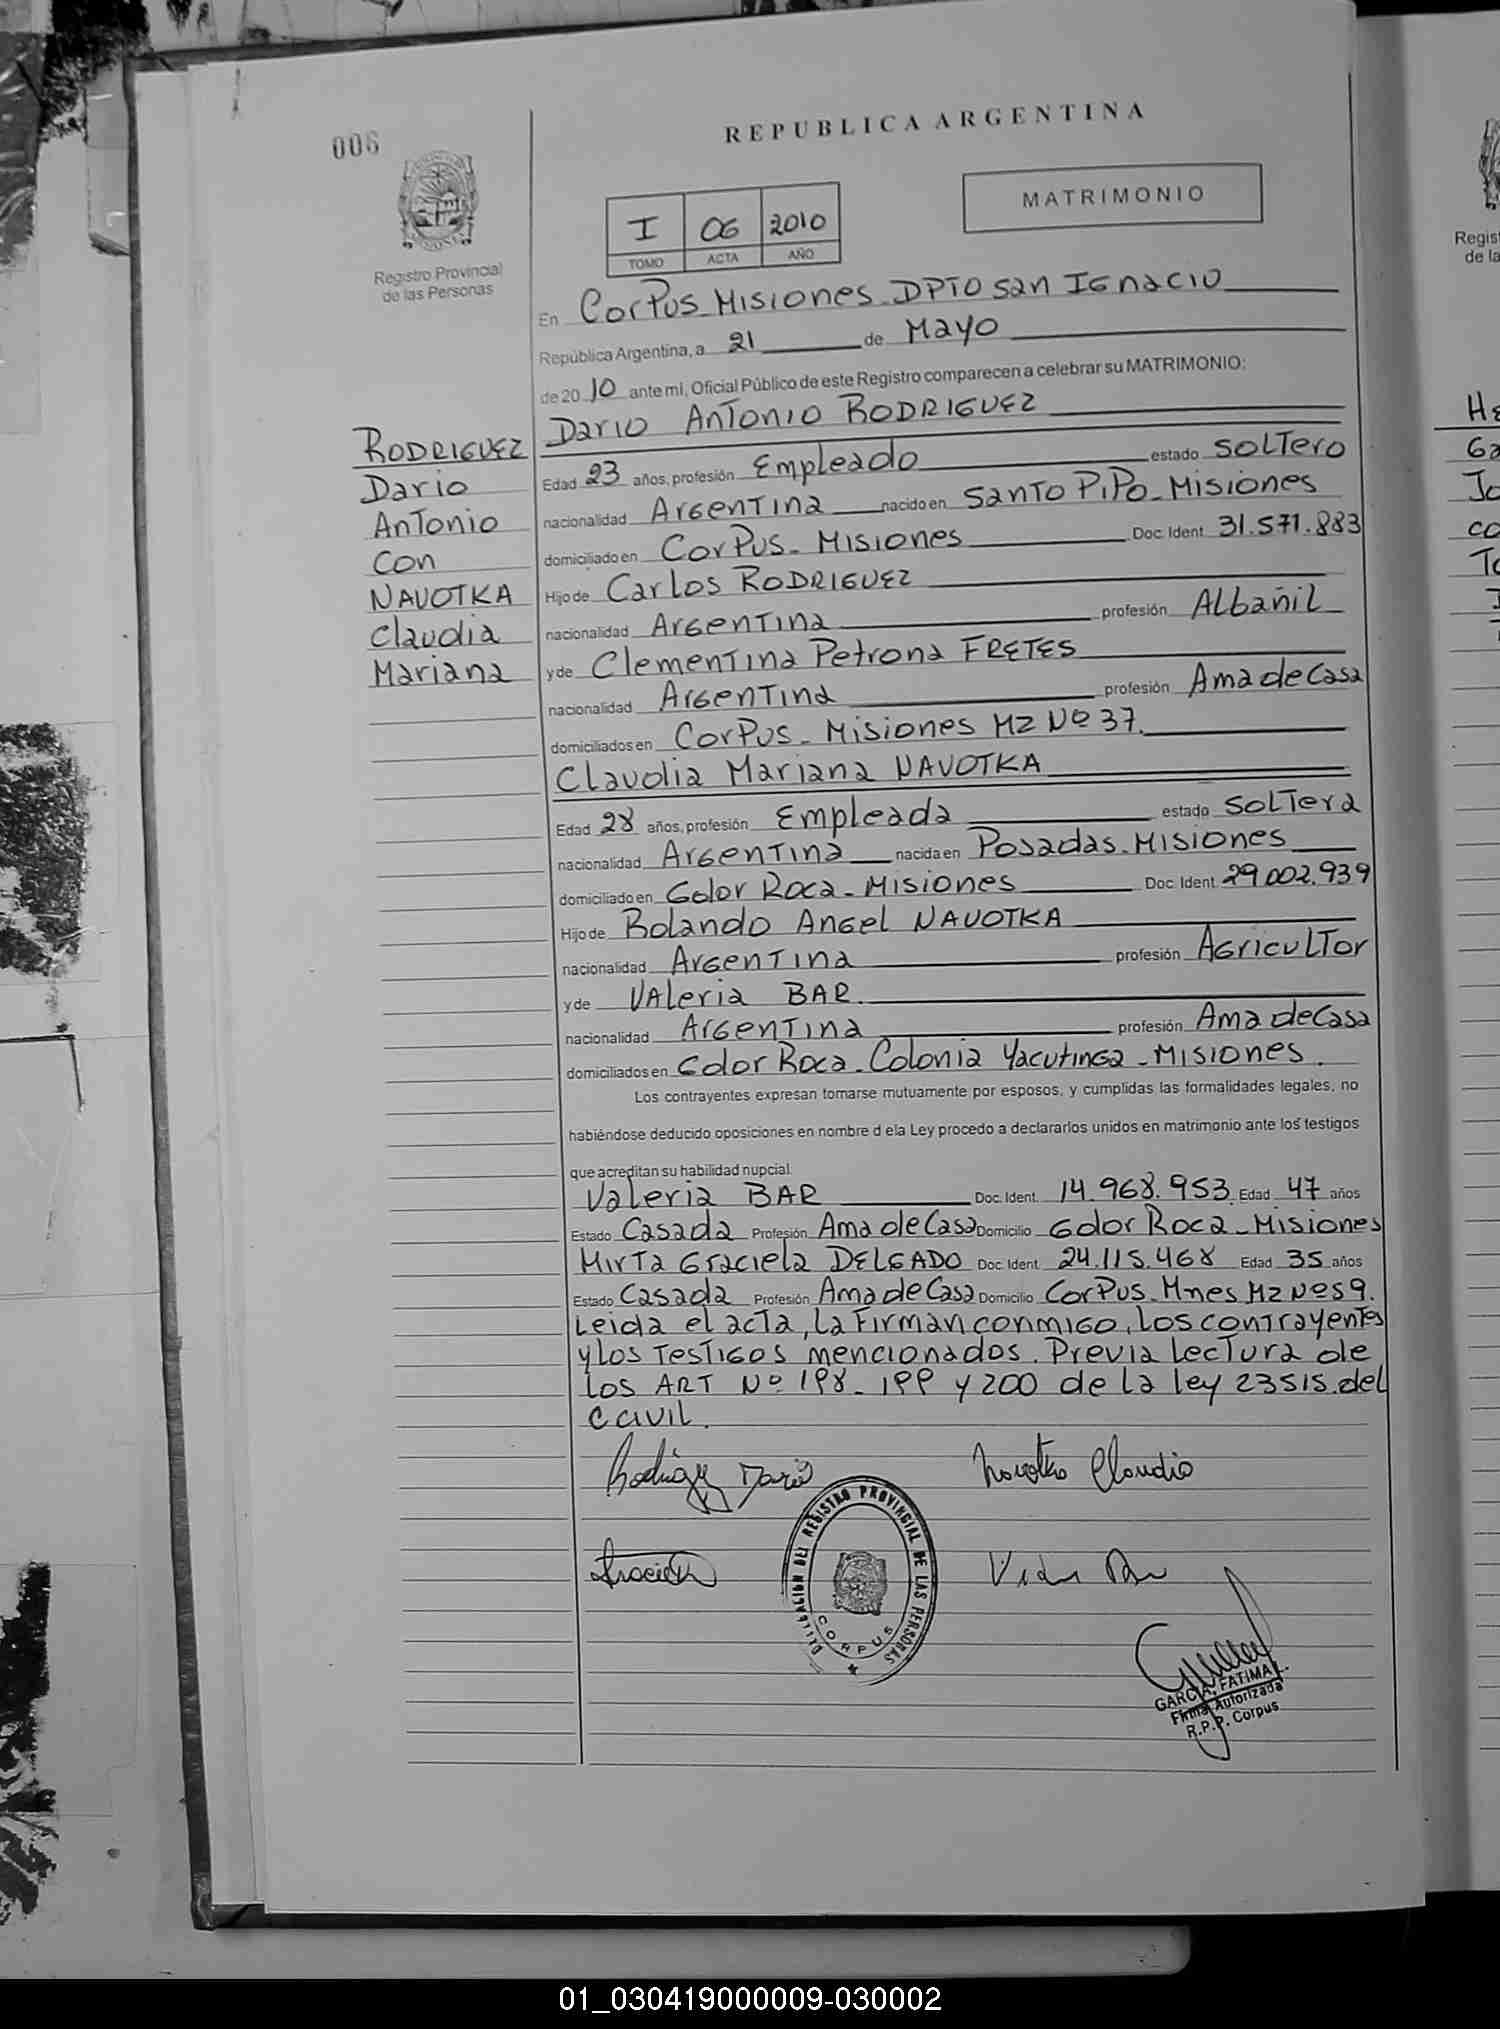 006
REPUBLICA ARGENTINA
MATRIMONIO
I 06 2010
TOMO ACTA AÑO
Registro Provincial
de las Personas
En Corpus Misiones DPTO San Ignacio
República Argentina, a 21 de Mayo
de 2010 ante mi, Oficial Público de este Registro comparecen a celebrar su MATRIMONIO:
Dario Antonio RODRIGUEZ
Edad 23 años, profesión Empleado estado SOLTERO
nacionalidad Argentina nacido en Santo Pipo - Misiones
domiciliado en Corpus - Misiones Doc. Ident 31.571.883
Hijo de Carlos RODRIGUEZ
nacionalidad Argentina profesión Albañil
y de Clementina Petrona FRETES
nacionalidad Argentina profesión Ama de Casa
domiciliados en Corpus - Misiones MZ Nº 37.
Claudia Mariana NAVOTKA
Edad 28 años, profesión Empleada estado Soltera
nacionalidad Argentina nacida en Posadas - Misiones
domiciliado en Gdor Roca - Misiones Doc. Ident 29.002.939
Hijo de Rolando Angel NAVOTKA
nacionalidad Argentina profesión Agricultor
y de Valeria BAR.
nacionalidad Argentina profesión Ama de Casa
domiciliados en Gdor Roca - Colonia Yacutinga - Misiones.
Los contrayentes expresan tomarse mutuamente por esposos, y cumplidas las formalidades legales, no
habiéndose deducido oposiciones en nombre d ela Ley procedo a declararlos unidos en matrimonio ante los testigos
que acreditan su habilidad nupcial:
Valeria BAR Doc. Ident. 14.968.953 Edad 47 años
Estado Casada Profesión Ama de Casa Domicilio Gdor Roca - Misiones
Mirta Graciela DELGADO Doc. Ident 24.115.468 Edad 35 años
Estado Casada Profesión Ama de Casa Domicilio Corpus - Mnes MZ Nº 59.
Leida el acta, la Firman conmigo, los contrayentes
y los testigos mencionados. Previa Lectura de
los ART Nº 198 - 199 y 200 de la ley 23515 del
C Civil.
RODRIGUEZ
Dario
Antonio
con
NAVOTKA
Claudia
Mariana
Rodriguez Dario
Navotka Claudia
DELEGACION DEL REGISTRO PROVINCIAL DE LAS PERSONAS
CORPUS
GARCIA, FATIMA L.
Firma Autorizada
R.P.P. Corpus
Regist
de la
01_030419000009-030002